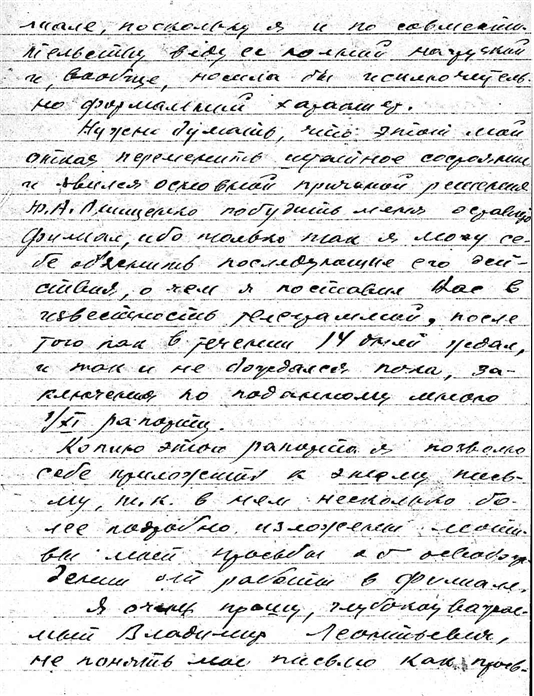 лиале, поскольку я и по совмести-
тельству веду ее полный нагрузкой
и, вообще, носила бы исключитель-
но формальный характер.
Нужно думать, что этот мой
отказ переменить штатное состояние
и явился основной причиной решения
Лищенко побудить меня оставить
филиал, ибо только так я могу се-
бе объяснить последующие его дей-
ствия, о чем я поставил Вас в
известность телеграммой, после
того как в течении 14 дней ждал,
и так и не дождался пока, за-
ключения по поданному мною
1/XI рапорту.
Копию этого рапорта я позволю
себе приложить к этому пись-
му, т.к. в нем несколько бо-
лее подробно изложены моти-
вы моей просьбы об освобож-
дении от работы в филиале.
Я очень прошу, глубокоуважае-
мый Владимир Леонтьевич,
не понять мое письмо как прось-